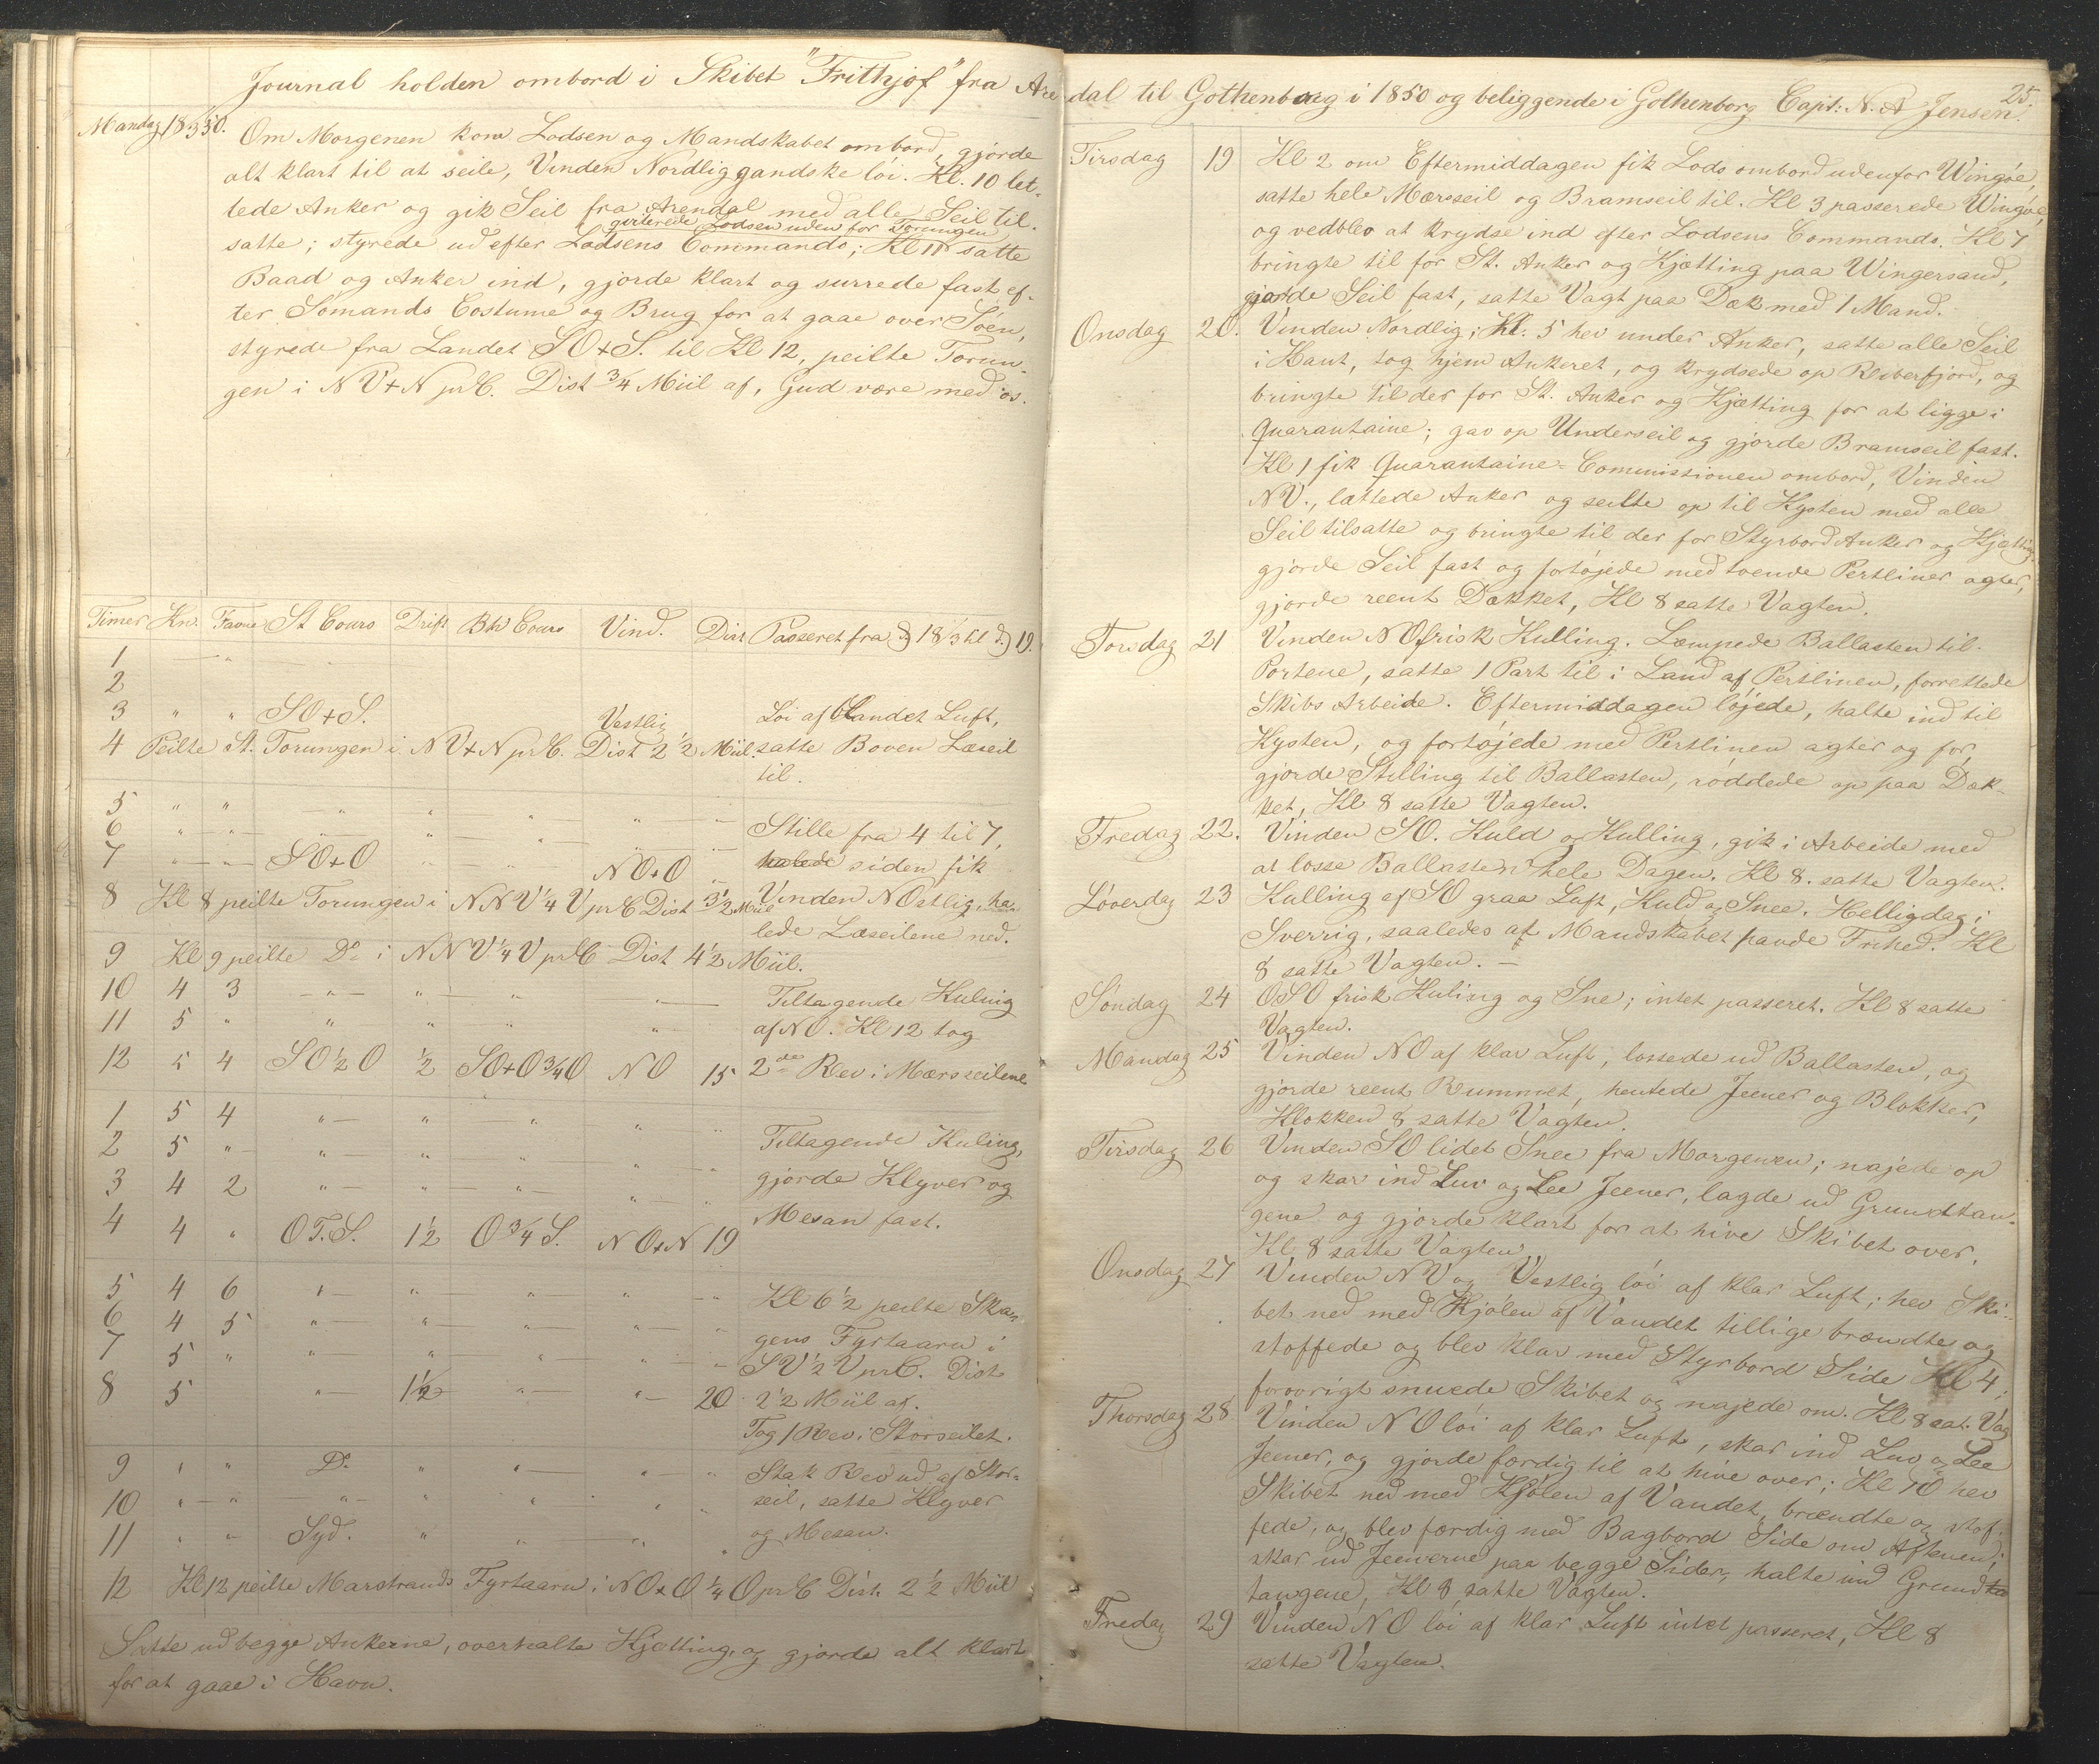 Journal holden ombord i Skibet "Frithjof" fra Arendal til Gothenborg i 1850 og beliggende i Gothenborg Capt: N. A Jensen.
25.
Mandag 18 3/3 50.
Om Morgenen kom Lodsen og Mandskabet ombord, gjorde
alt klart til at seile, Vinden Nordlig gandske löi. Kl. 10 let-
tede Anker og gik Seil fra Arendal med alle Seil til.
qviterede Lodsen uden for Torungen
satte; styrede ud efter Lodsens Commando; Kl 11 satte
Baad og Anker ind, gjorde klart og surrede fast ef-
ter Sömands Costume og Brug for at gaae over Söen,
styrede fra Landet SO+S. til Kl 12, peilte Torun-
gen i NV+N prC. Dist 3/4 Miil af, Gud være med os.
Timer Kn. Favne St Cours Drift Bh Cours Vind. Dist Passeret fra D 18/3 til D 19.
1 — "
2
3 " " SO+S. Vestlig Löi af blandet Luft,
4 Peilte St. Torungen i NV+N prC. Dist 2 1/2 Miil. satte Boven Læseil
til.
5 " " — " " " —
6 " — " — " — " " — " — Stille fra 4 til 7,
7 " — " — SO+O " — " — NO+O " halede siden fik
8 Kl 8 peilte Torungen i NNV 1/4 V prC Dist 3 1/2 Miil Vinden NOstlig, ha-
lede Læseilene ned.
9 Kl 9 peilte Do i NNV 1/4 V prC Dist 4 1/2 Miil.
10 4 3 — " — " — " — " — Tiltagende Kuling
11 5 " " " " " af NO. Kl 12 tog
12 5 4 SO 1/2 O 1/2 SO+O 3/4 O NO 15 2det Rev i Mærsseilene
1 5 4 " — " " " "
2 5 " " — " " " " Tiltagende Kuling,
3 4 2 " — " — " — " — " gjorde Klyver og
4 4 " OT.S. 1 1/2 O 3/4 S. NO+N 19 Mesan fast.
5 4 6 " — " — " — " — " Kl 6 1/2 peilte Skau-
6 4 5 " — " — " — " — " gens Fyrtaarn i
7 5 " " — " — " — " — " SV 1/2 V prC. Dist
8 5 " — 1 1/2 " — " — 20 2 1/2 Miil af.
Tog 1 Rev i Storseilet.
9 " " Do " " — " — " Stak Rev ud af Stor-
10 " — " " — " " " " seil, satte Klyver
11 " " Syd. " " " " og Mesan.
12 Kl 12 peilte Marstrands Fyrtaarn i NO+O 1/4 O prC Dist. 2 1/2 Miil
Satte ud begge Ankerne, overhalte Kjætting, og gjorde alt klart
for at gaae i Havn.
Tirsdag 19 Kl 2 om Eftermiddagen fik Lods ombord udenfor Wingöe,
satte hele Mærsseil og Bramseil til. Kl 3 passerede Wingöe,
og vedblev at krydse ind efter Lodsens Commando. Kl 7
bringte til for St. Anker og Kjætting paa Wingersand,
gjorde Seil fast, satte Vagt paa Dæk med 1 Mand.
Onsdag 20. Vinden Nordlig; Kl. 5 hev under Anker, satte alle Seil
i Kant, tog hjem Ankeret, og krydsede op Reberfjord, og
bringte til der for St. Anker og Kjætting for at ligge i
Quarantaine; gav op Underseil og gjorde Bramseil fast.
Kl 1 fik Quarantaine-Commissionen ombord, Vinden
NV., lættede Anker og seilte op til Kysten med alle
Seil tilsatte og bringte til der for Styrbord Anker og Kjætting
gjorde Seil fast og fortöjede med toende Pertliner agter,
gjorde reent Dækket, Kl 8 satte Vagten.
Torsdag 21 Vinden NO frisk Kulling. Læmpede Ballasten til.
Portene, satte 1 Part til i Land af Pertlinen, forrettede
Skibs Arbeide. Eftermiddagen löjede, halte ind til
Kysten, og fortöjede med Pertlinen agter og for,
gjorde Stilling til Ballasten, röddede op paa Dæk-
ket, Kl 8 satte Vagten.
Fredag 22. Vinden SO. Kuld og Kulling, gik i Arbeide med
at losse Ballasten hele Dagen. Kl 8. satte Vagten.
Löverdag 23 Kulling af SO graa Luft, Kuld og Snee. Helligdag i
Sverrig, saaledes at Mandskabet havde Frihed. Kl
8 satte Vagten. —
Söndag 24 OSO frisk Kuling og Sne; intet passeret. Kl 8 satte
Vagten.
Mandag 25 Vinden NO af klar Luft, lossede ud Ballasten, og
gjorde reent Rummet, hentede Jeener og Blokker,
Klokken 8 satte Vagten.
Tirsdag 26 Vinden SO lidet Snee fra Morgenen; najede op
og skar ind Luv og Lee Jeener, lagde ud Grundtan-
gene og gjorde klart for at hive Skibet over.
Kl 8 satte Vagten.
Onsdag 27 Vinden NV og Vestlig löi af klar Luft; hev Ski-
bet ned med Kjölen af Vandet tillige brændte og
stoffede og blev klar med Styrbord Side Kl 4;
forövrigt snuede Skibet og najede om. Kl 8 sat. Vag
Thorsdag 28 Vinden NO löi af klar Luft, skar ind Luv og Lee
Jeener, og gjorde færdig til at hive over; Kl 10 hev
Skibet ned med Kjölen af Vandet, brændte og stof-
fede, og blev færdig med Bagbord Side om Aftenen;
skar ud Jeenerne paa begge Sider, halte ind Grund
tangene, Kl 8 satte Vagten.
Fredag 29 Vinden NO löi af klar Luft intet passeret, Kl 8
satte Vagten.